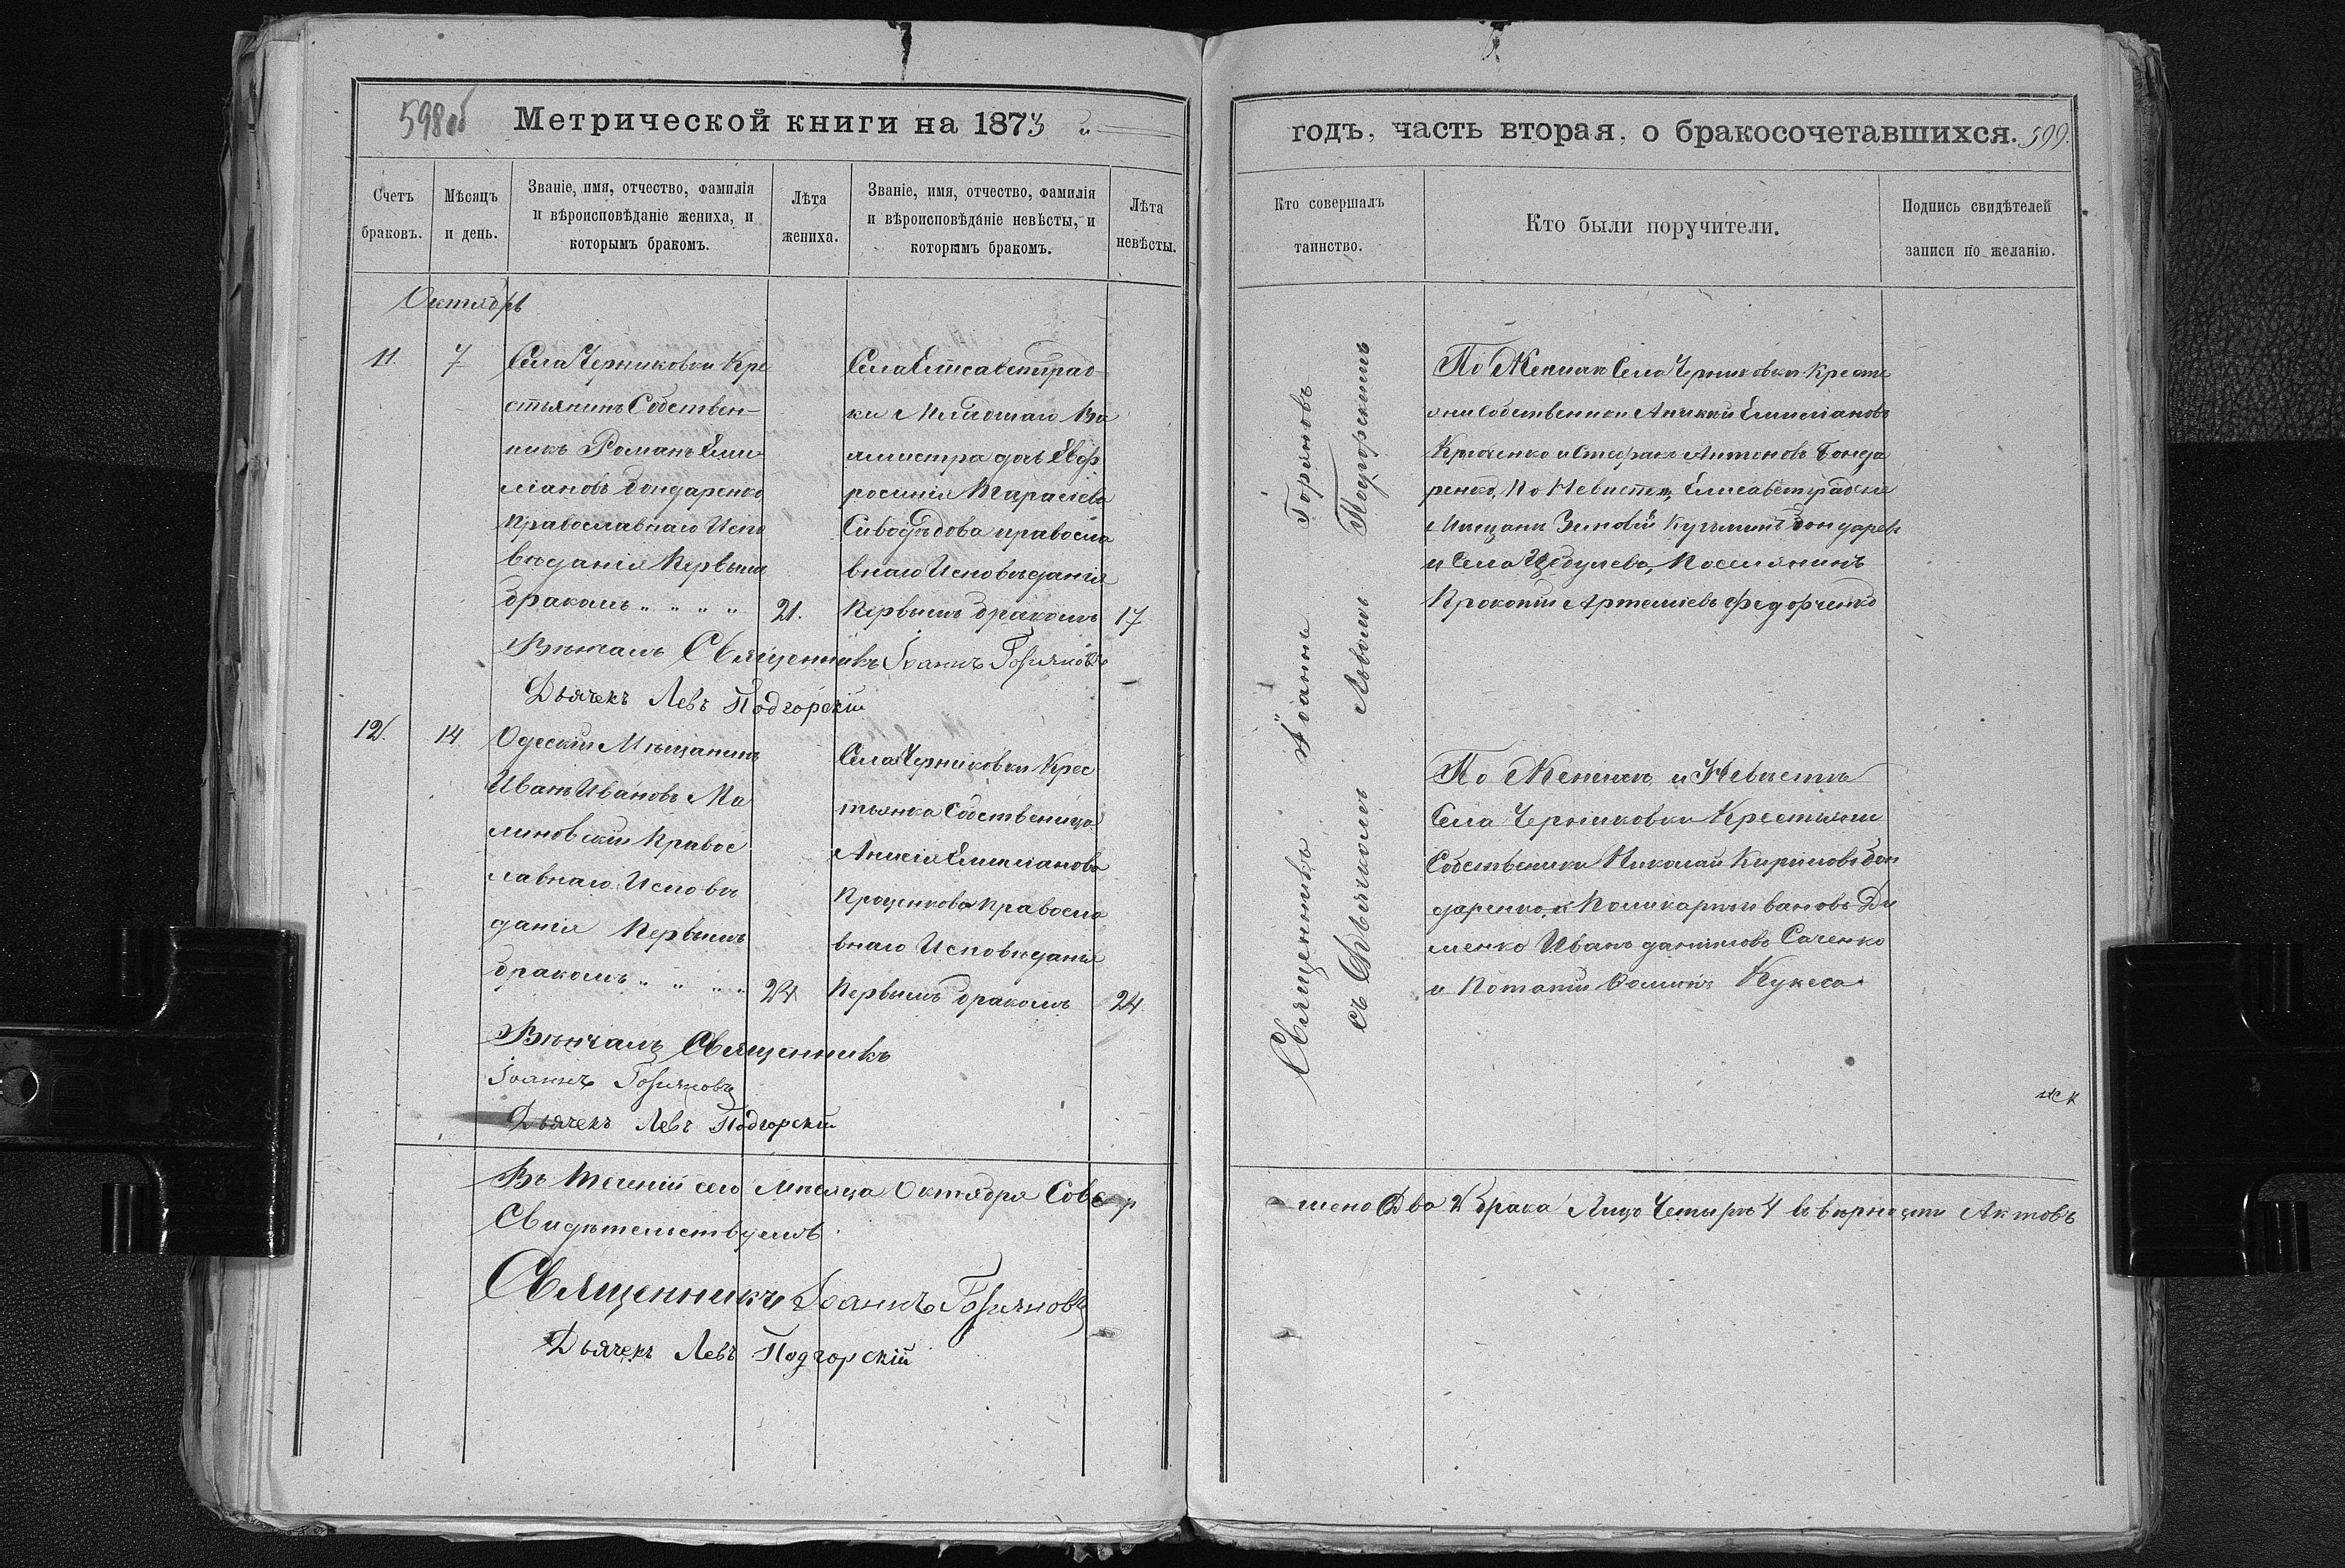 598об
Метрической книги на 1873 "
Счетъ браковъ.
Мѣсяцъ и день.
Званіе, имя, отчество, фамилія и вѣроисповѣданіе жениха, и которымъ бракомъ.
Лѣта жениха.
Званіе, имя, отчество, фамилія и вѣроисповѣданіе невѣсты, и которымъ бракомъ.
Лѣта невѣсты.
Октябрь
11.
7
Села Черниковки Кре
стьянинъ Собствен-
никъ Романъ Еми-
ліановъ Бондаренко
Православнаго Испо
вѣданія Первымъ
бракомъ " " " "
21.
Села Елисаветград-
ки
дочь Евф
росинія Тарасіева
Сиводѣдова правосла
внаго Исповѣданія
Первымъ бракомъ
17
Вѣнчалъ Священникъ Іоаннъ Горяновъ
Дьячекъ Левъ Подгорскій
12.
14
Одескій Мѣщанинъ
Иванъ Ивановъ Ма
линовскій Правос
лавнаго Исповѣ
данія Первымъ
бракомъ " " " "
24
Села Черниковки Крес
тьянка Собственица
Анисія Емиліанова
Проценкова Правосла
внаго Исповѣданія
Первымъ бракомъ
24
Вѣнчалъ Священникъ
Іоаннъ Горяновъ
Дьячекъ Левъ Подгорскій
Въ теченіи сего Мѣсяца Октября Совер
Свидѣтельствуемъ
Священникъ Іоаннъ Горяновъ
Дьячекъ Левъ Подгорскій
годъ, часть вторая, о бракосочетавшихся.
599.
Кто совершалъ таинство.
Кто были поручители.
Подпись свидѣтелей записи по желанію.
Священникъ Іоаннъ Горяновъ
съ Дьячкомъ Львомъ Подгорскимъ
По Женихѣ Села Черниковки Крестья
они Собственики Емиліановъ
и Стефанъ Антоновъ Бонда
ренко, По Невѣстѣ, Елисаветградскіе
Мещани Зиновій Бондарев
и Села Цебулева, Поселянинъ
Прокопій Артеміевъ Федорченко
По Женихѣ и Невѣстѣ
Села Черниковки Крестьяни
Собственики Николай Кириловъ Бон
даренко, и Поликарпъ Ивановъ Ди
менко Иванъ Даниловъ Саченко
и Потапій Фоминъ Кукса
шено Два 2 Брака Лицъ Четыре 4 въ вѣрности Актовъ